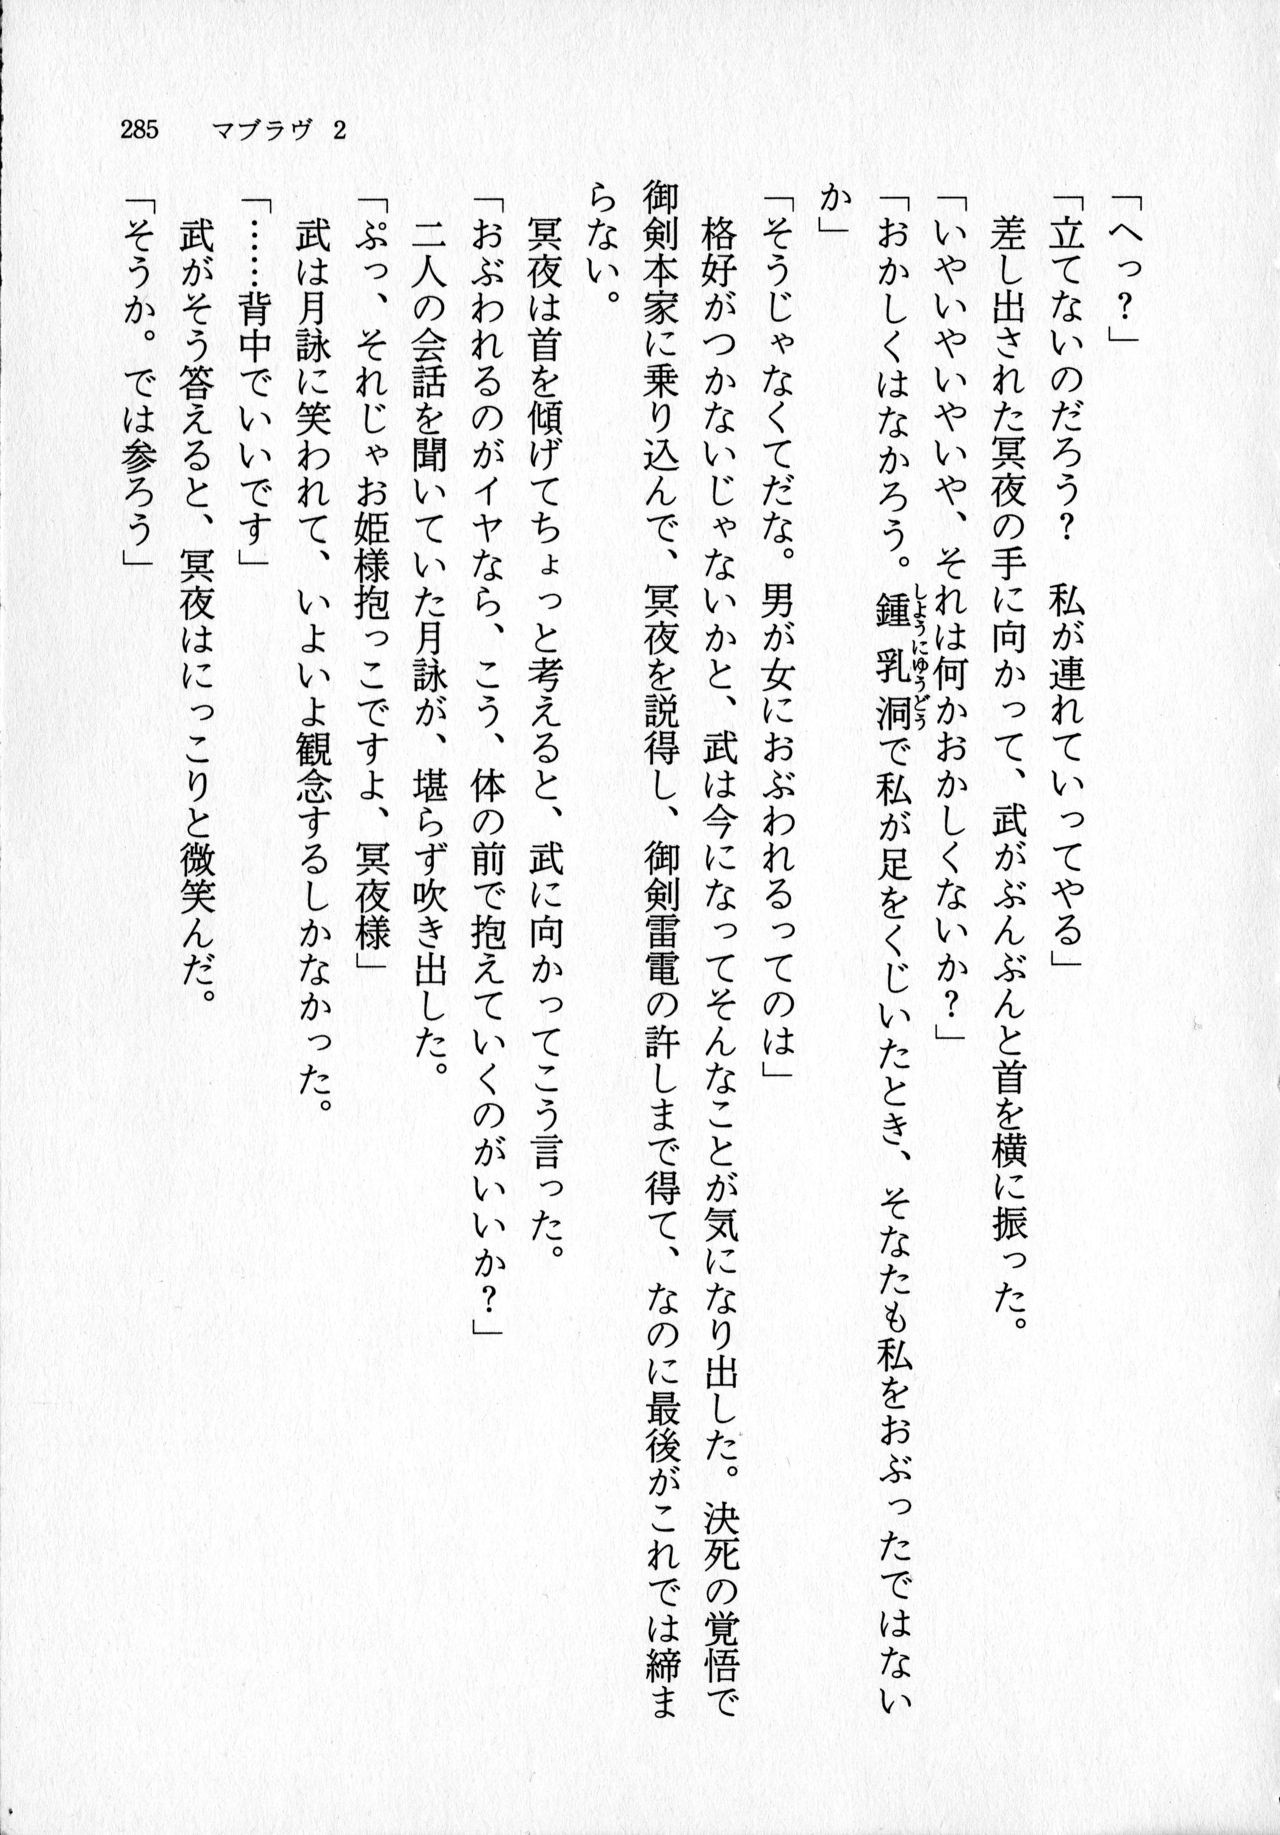 285　マブラヴ 2
「へっ？」
「立てないのだろう？　私が連れていってやる」
　差し出された冥夜の手に向かって、武がぶんぶんと首を横に振った。
「いやいやいやいや、それは何かおかしくないか？」
「おかしくはなかろう。鍾乳洞で私が足をくじいたとき、そなたも私をおぶったではない
か」
「そうじゃなくてだな。男が女におぶわれるってのは」
　格好がつかないじゃないかと、武は今になってそんなことが気になり出した。決死の覚悟で
御剣本家に乗り込んで、冥夜を説得し、御剣雷電の許しまで得て、なのに最後がこれでは締ま
らない。
　冥夜は首を傾げてちょっと考えると、武に向かってこう言った。
「おぶわれるのがイヤなら、こう、体の前で抱えていくのがいいか？」
　二人の会話を聞いていた月詠が、堪らず吹き出した。
「ぷっ、それじゃお姫様抱っこですよ、冥夜様」
　武は月詠に笑われて、いよいよ観念するしかなかった。
「……背中でいいです」
　武がそう答えると、冥夜はにっこりと微笑んだ。
「そうか。では参ろう」
しようにゆうどう